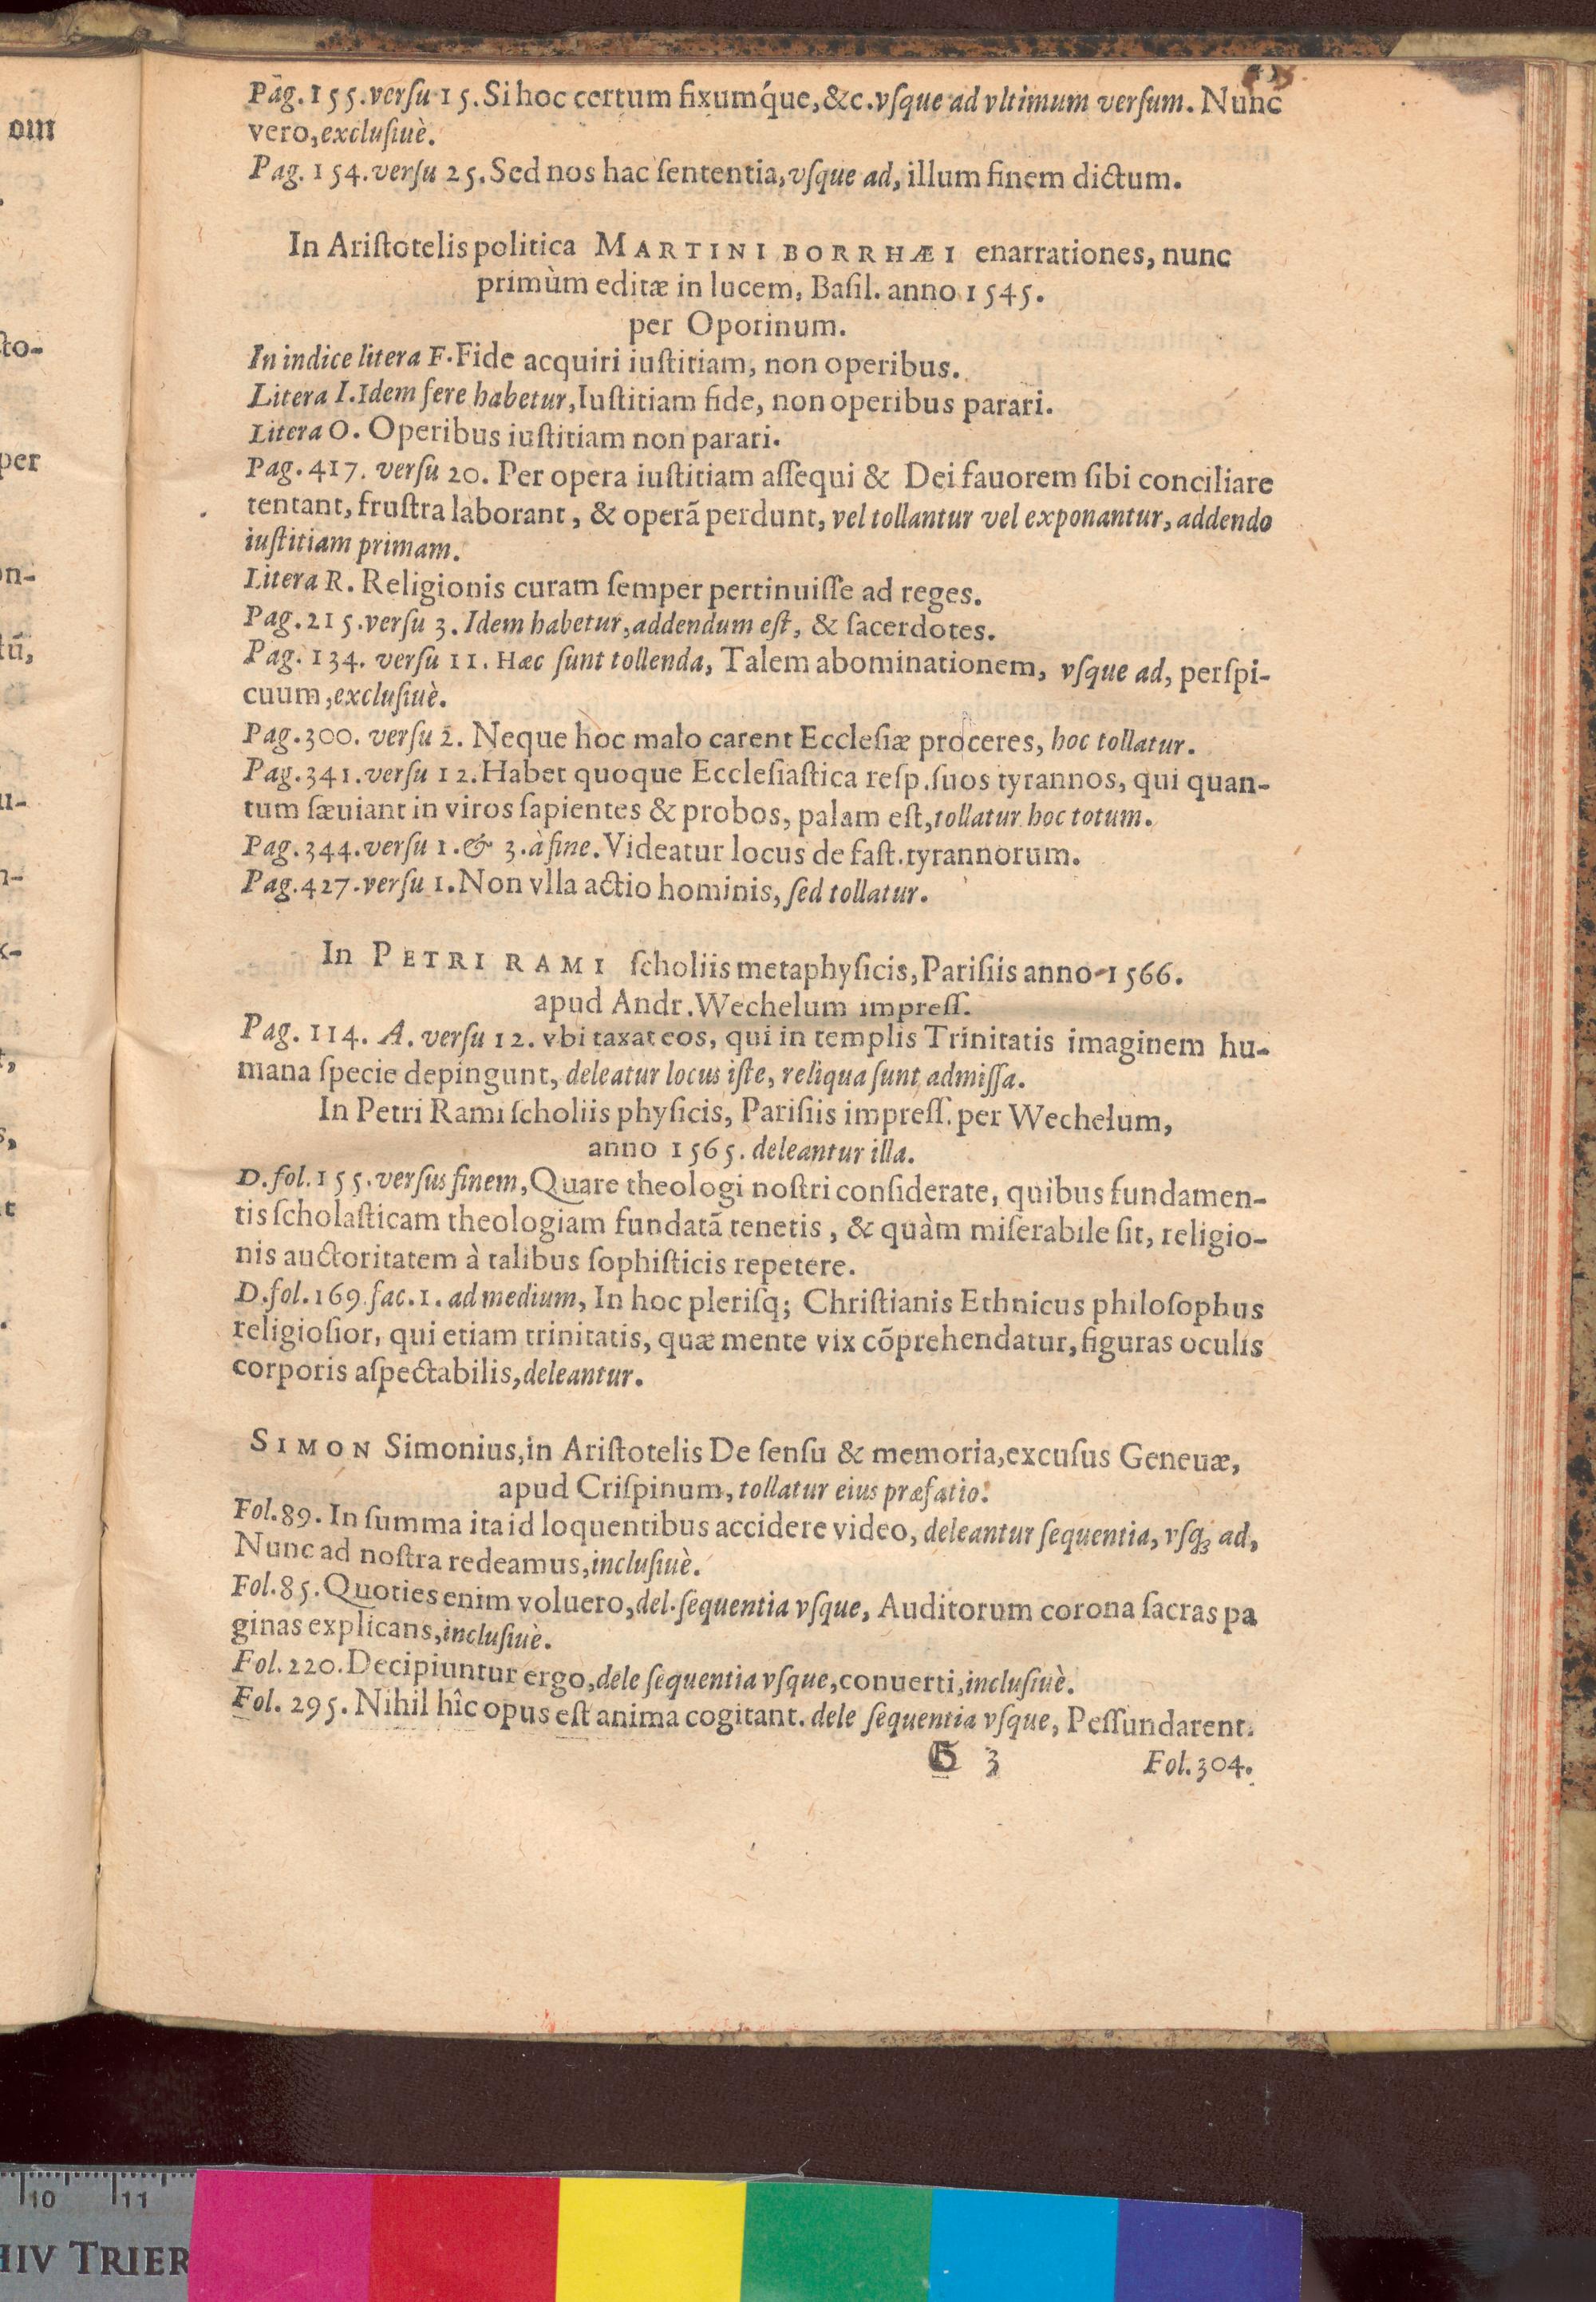 Pag. 155. versu 15. Si hoc certum fixumq́ue, &c. vsque ad vltimum versum. Nunc
vero, exclusiuè.
Pag. 154. versu 25. Sed nos hac sententia, vsque ad, illum finem dictum.
In Aristotelis politica MARTINI BORRHÆI enarrationes, nunc
primùm editæ in lucem, Basil. anno 1545.
per Oporinum.
In indice litera F. Fide acquiri iustitiam, non operibus.
Litera I. Idem fere habetur, Iustitiam fide, non operibus parari.
Litera O. Operibus iustitiam non parari.
Pag. 417. versu 20. Per opera iustitiam assequi & Dei fauorem sibi conciliare
tentant, frustra laborant, & operã perdunt, vel tollantur vel exponantur, addendo
iustitiam primam.
Litera R. Religionis curam semper pertinuisse ad reges.
Pag. 215. versu 3. Idem habetur, addendum est, & sacerdotes.
Pag. 134. versu 11. Hæc sunt tollenda, Talem abominationem, vsque ad, perspi-
cuum, exclusiuè.
Pag. 300. versu 2. Neque hoc malo carent Ecclesiæ proceres, hoc tollatur.
Pag. 341. versu 12. Habet quoque Ecclesiastica resp. suos tyrannos, qui quan-
tum sæuiant in viros sapientes & probos, palam est, tollatur hoc totum.
Pag. 344. versu 1. & 3. à fine. Videatur locus de fast. tyrannorum.
Pag. 427. versu 1. Non vlla actio hominis, sed tollatur.
In PETRI RAMI scholiis metaphysicis, Parisiis anno 1566.
apud Andr. Wechelum impress.
Pag. 114. A. versu 12. vbi taxat eos, qui in templis Trinitatis imaginem hu-
mana specie depingunt, deleatur locus iste, reliqua sunt admissa.
In Petri Rami scholiis physicis, Parisiis impress. per Wechelum,
anno 1565. deleantur illa.
D. fol. 155. versus finem, Quare theologi nostri considerate, quibus fundamen-
tis scholasticam theologiam fundatã tenetis, & quàm miserabile sit, religio-
nis auctoritatem à talibus sophisticis repetere.
D. fol. 169 fac. 1. ad medium, In hoc plerisq; Christianis Ethnicus philosophus
religiosior, qui etiam trinitatis, quæ mente vix cõprehendatur, figuras oculis
corporis aspectabilis, deleantur.
SIMON Simonius, in Aristotelis De sensu & memoria, excusus Geneuæ,
apud Crispinum, tollatur eius præfatio.
Fol. 89. In summa ita id loquentibus accidere video, deleantur sequentia, vsq; ad,
Nunc ad nostra redeamus, inclusiuè.
Fol. 85. Quoties enim voluero, del. sequentia vsque, Auditorum corona sacras pa
ginas explicans, inclusiuè.
Fol. 220. Decipiuntur ergo, dele sequentia vsque, conuerti, inclusiuè.
Fol. 295. Nihil hîc opus est anima cogitant. dele sequentia vsque, Pessundarent.
G 3 Fol. 304.
om
sto-
per
on-
tũ,
u-
n-
x-
t,
s,
t
10 11
HIV TRIER